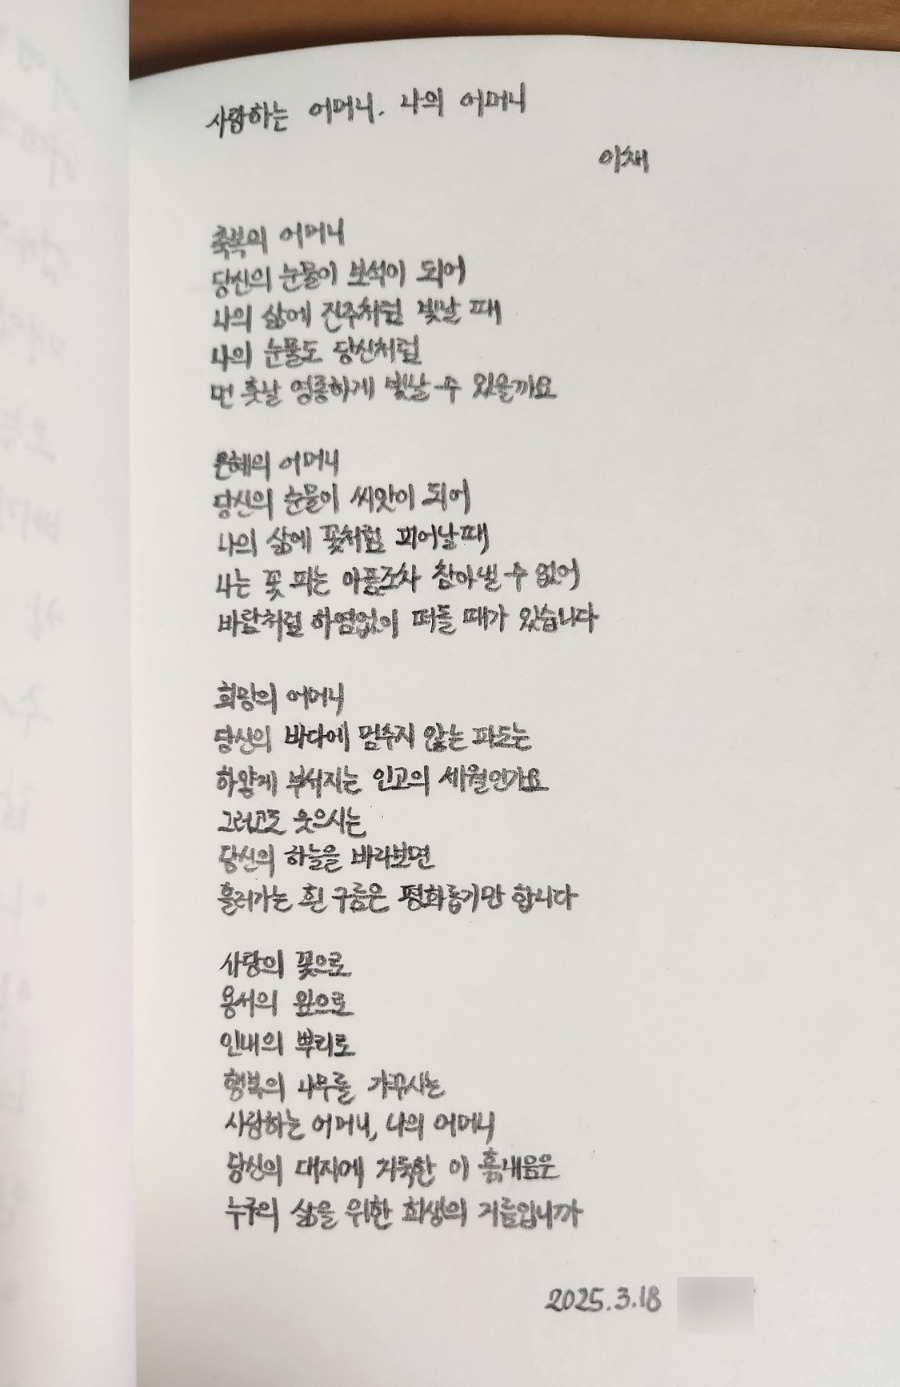 사랑하는 어머니. 나의 어머니
이채
축복의 어머니
당신의 눈물이 보석이 되어
나의 삶에 진주처럼 빛날 때
나의 눈물도 당신처럼
먼 훗날 영롱하게 빛날 수 있을까요
은혜의 어머니
당신의 눈물이 씨앗이 되어
나의 삶에 꽃처럼 피어날 때
나는 꽃 피는 아픔조차 참아낼 수 없어
바람처럼 하염없이 떠돌 때가 있습니다
희망의 어머니
당신의 바다에 멈추지 않는 파도는
하얗게 부서지는 인고의 세월인가요
그러고도 웃으시는
당신의 하늘을 바라보면
흘러가는 흰 구름은 평화롭기만 합니다
사랑의 꽃으로
용서의 잎으로
인내의 뿌리로
행복의 나무를 가꾸시는
사랑하는 어머니, 나의 어머니
당신의 대지에 가득한 이 흙내음은
누구의 삶을 위한 희생의 거름입니까
2025.3.18